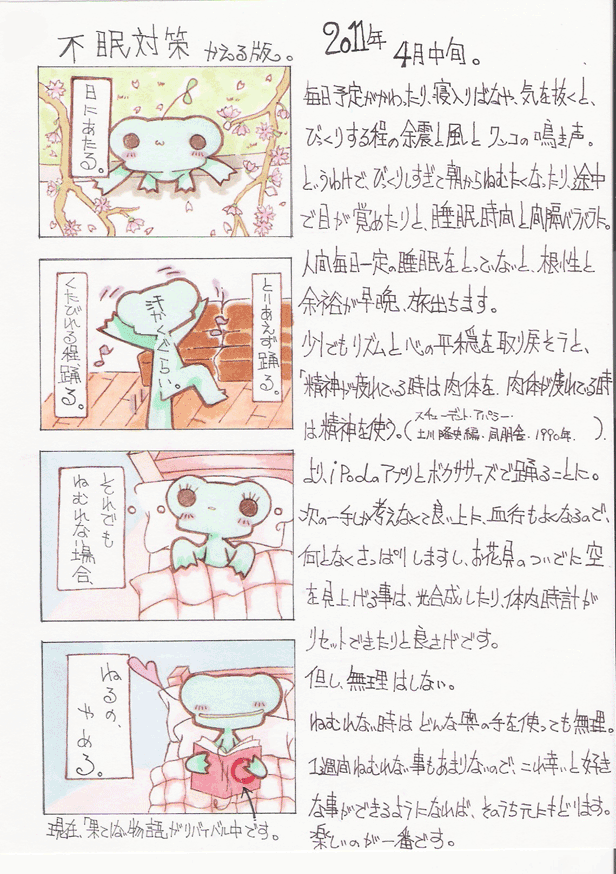 不眠対策 かえる版。
日にあたる。
とりあえず踊る。
汗かくぐらい。
くたびれる程踊る。
それでも
ねむれない場合、
ねるの、
やめる。
現在、「果てしない物語」がリバイバル中です。
2011年
4月中旬。
毎日予定がかわったり、寝入りばなや、気を抜くと、
びっくりする程の余震と風とワンコの鳴き声。
というわけで、びっくりしすぎて朝からねむたくなったり、途中
で目が覚めたりと、睡眠時間と間隔バラバラに。
人間毎日一定の睡眠をとっていないと、根性と
余裕が早晩、旅出ちます。
少しでもリズムと心の平穏を取り戻そうと、
「精神が疲れている時は肉体を、肉体が疲れている時
は精神を使う。(スチューデント・アパシー・
土川隆史編・同朋舎・1990年、)
より、iPodのアプリとボクササイズで踊ることに。
次の一手しか考えなくて良い上に、血行もよくなるので、
何となくさっぱりしますし、お花見のついでに空
を見上げる事は、光合成したり、体内時計が
リセットできたりと良さげです。
但し、無理はしない。
ねむれない時はどんな奥の手を使っても無理。
1週間ねむれない事もあまりないので、これ幸いと好き
な事ができるようになれば、そのうち元にもどります。
楽しいのが一番です。